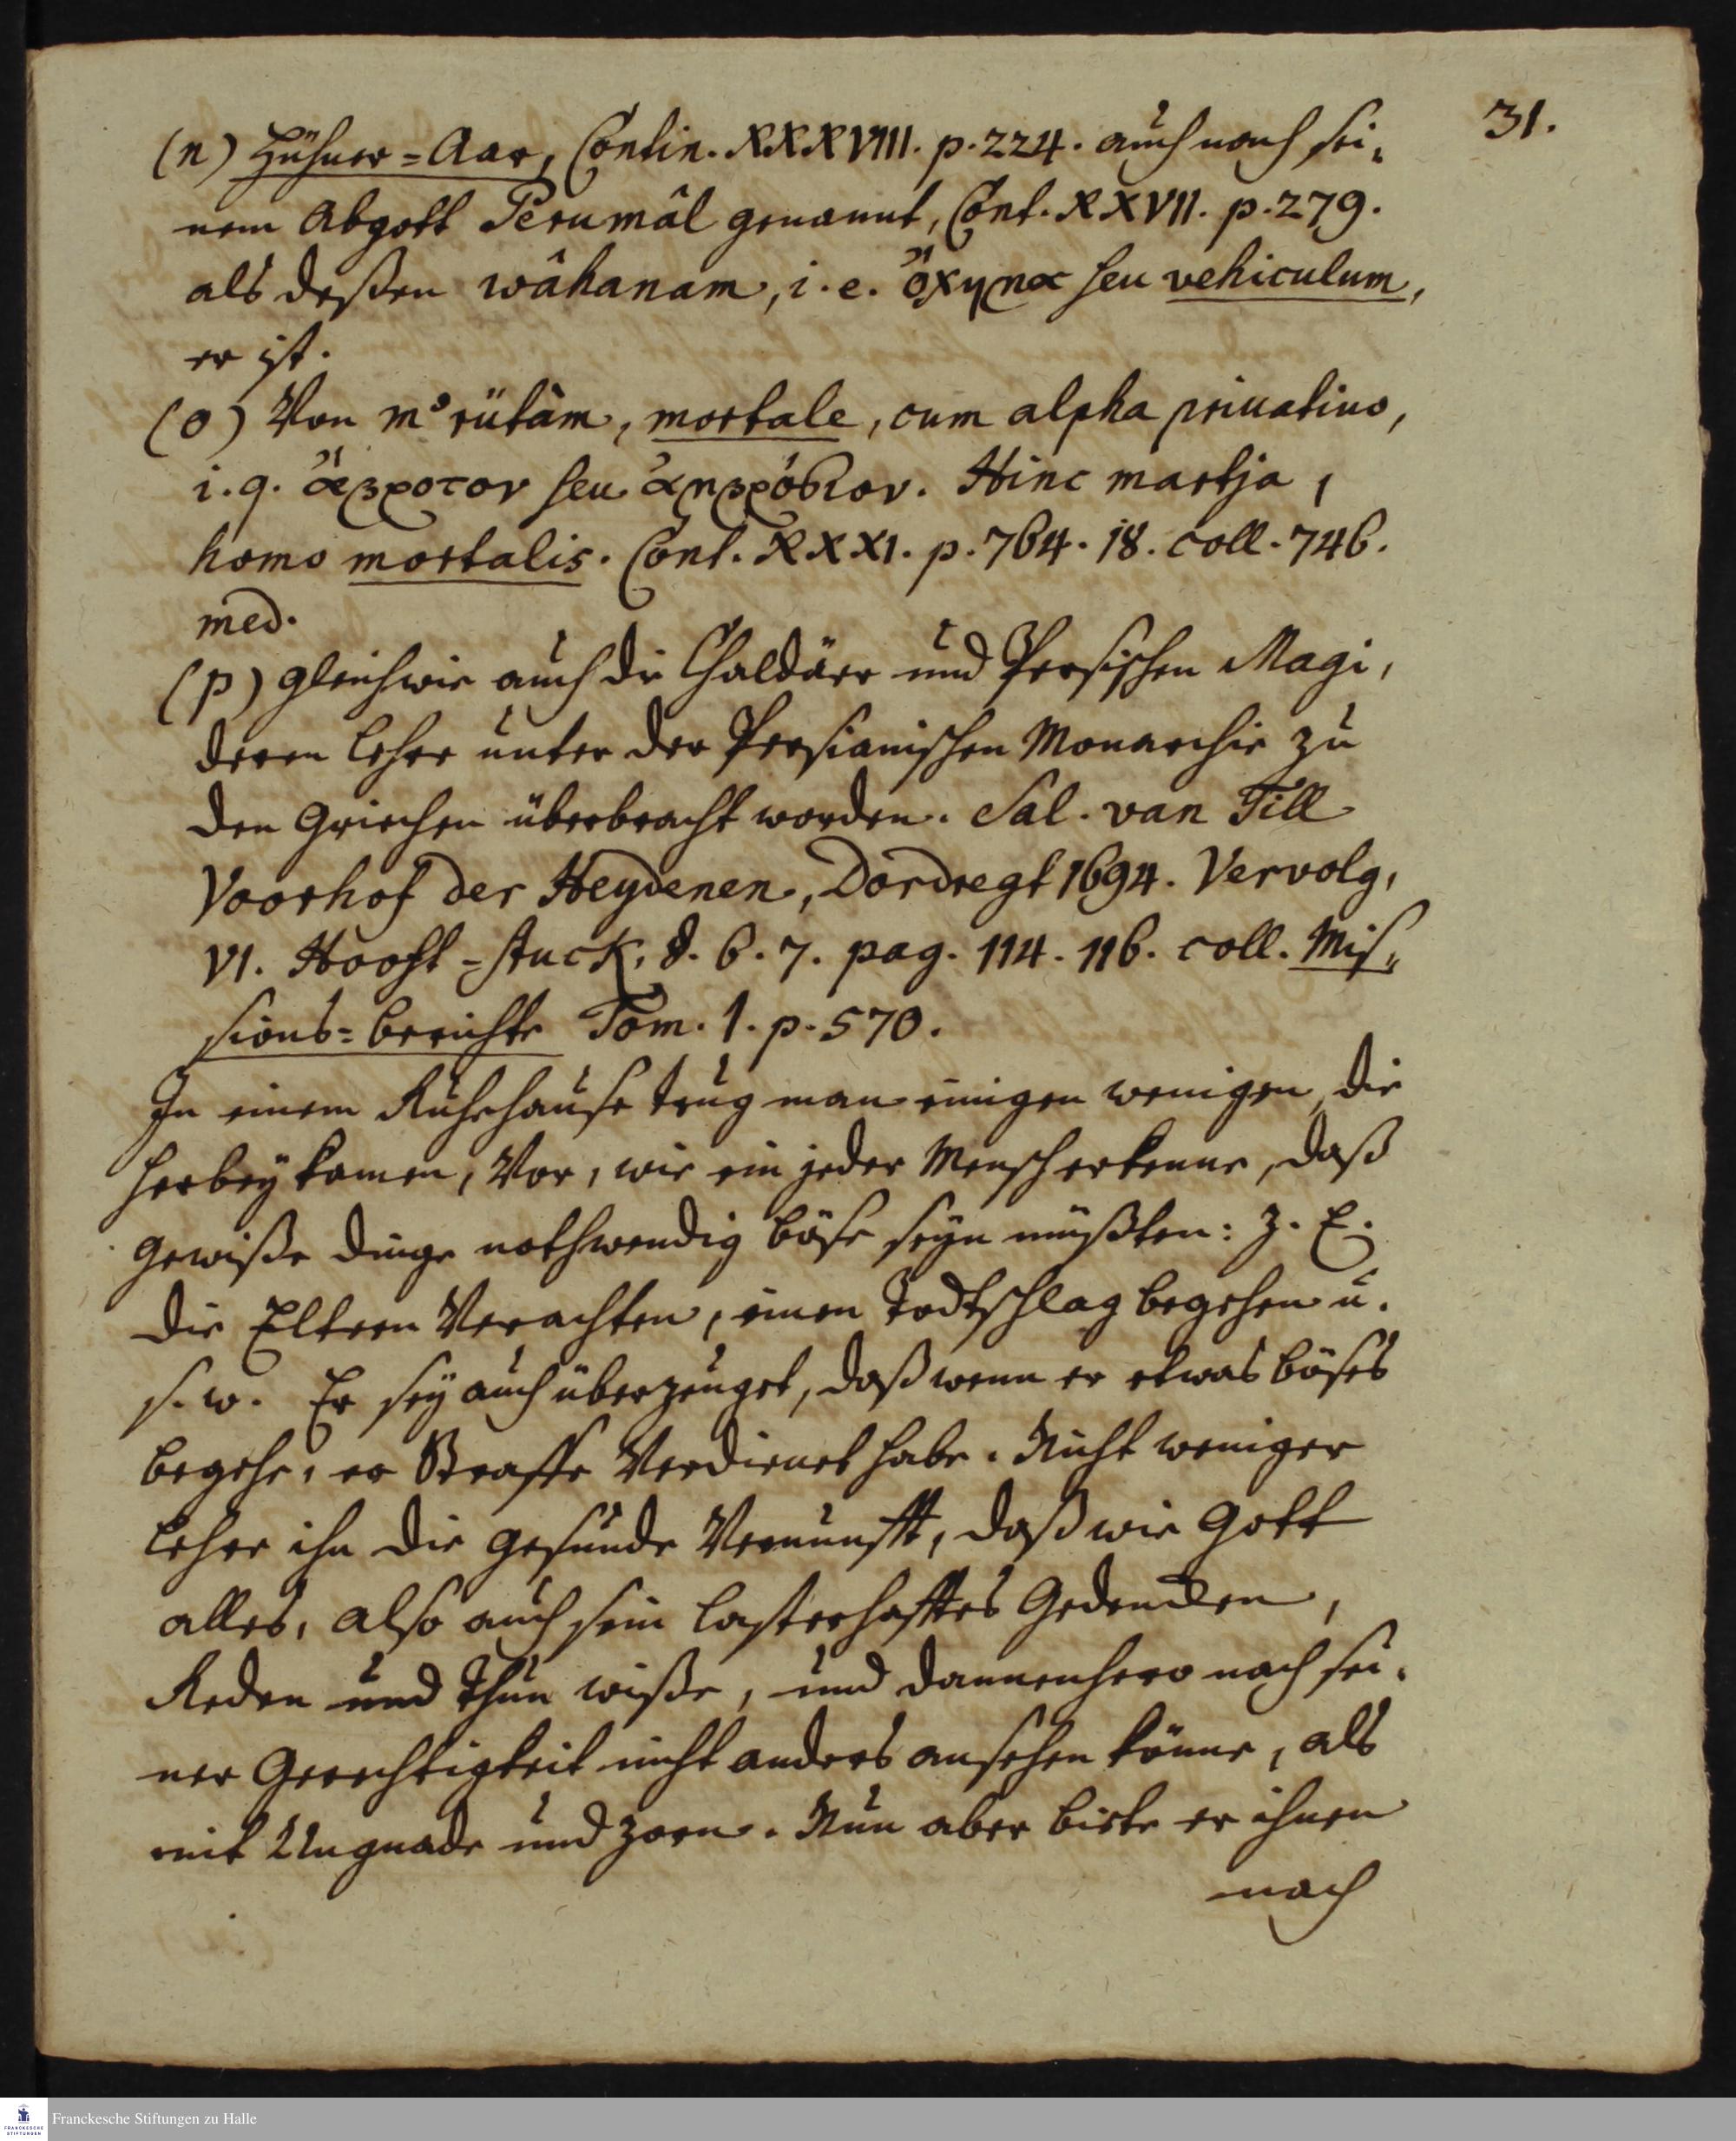 31.
(n) Hühner=Aar, Contin. XXXVIII. p. 224. auch nach sei-
nem Abgott Perumâl genannt, Cont. XXVII. p. 279.
als deßen wâhanam, i. e. ὄχημα seu vehiculum,
er ist.
(o) Von m°rütàm, mortale, cum alpha privativo,
i. q. ἄβροτον seu ἀμβρόσιον. Hinc martja,
homo mortalis. Cont. XXXI. p. 764. 18. coll. 746.
med.
(p) gleichwie auch die Chaldäer und Persischen Magi,
deren Lehre unter der Persianischen Monarchie zu
den Griechen überbracht worden. Sal. van Till
Voorhof der Heydenen, Dordregt 1694. Vervolg,
VI. Hooft-stuck, §. 6. 7. pag. 114. 116. coll. Mis-
sions=berichte Tom. 1. p. 570.
In einem Ruhehause trug man einigen wenigen, die
herbey kamen, vor, wie ein jeder Mensch erkenne, daß
gewiße Dinge nothwendig böse seyn müßten: z. E.
die Eltern verachten, einen Todtschlag begehen u.
s. w. Er sey auch überzeuget, daß wenn er etwas böses
begehe, er Straffe verdienet habe. Nicht weniger
lehre ihn die gesunde Vernunfft, daß wie Gott
alles, also auch sein lasterhafftes Gedencken,
Reden und Thun wiße, und dannenhero nach sei-
ner Gerechtigkeit nicht anders ansehen könne, als
mit Ungnade und Zorn. Nun aber biete er ihnen
nach
Franckesche Stiftungen zu Halle
FRANCKESCHE
STIFTUNGEN